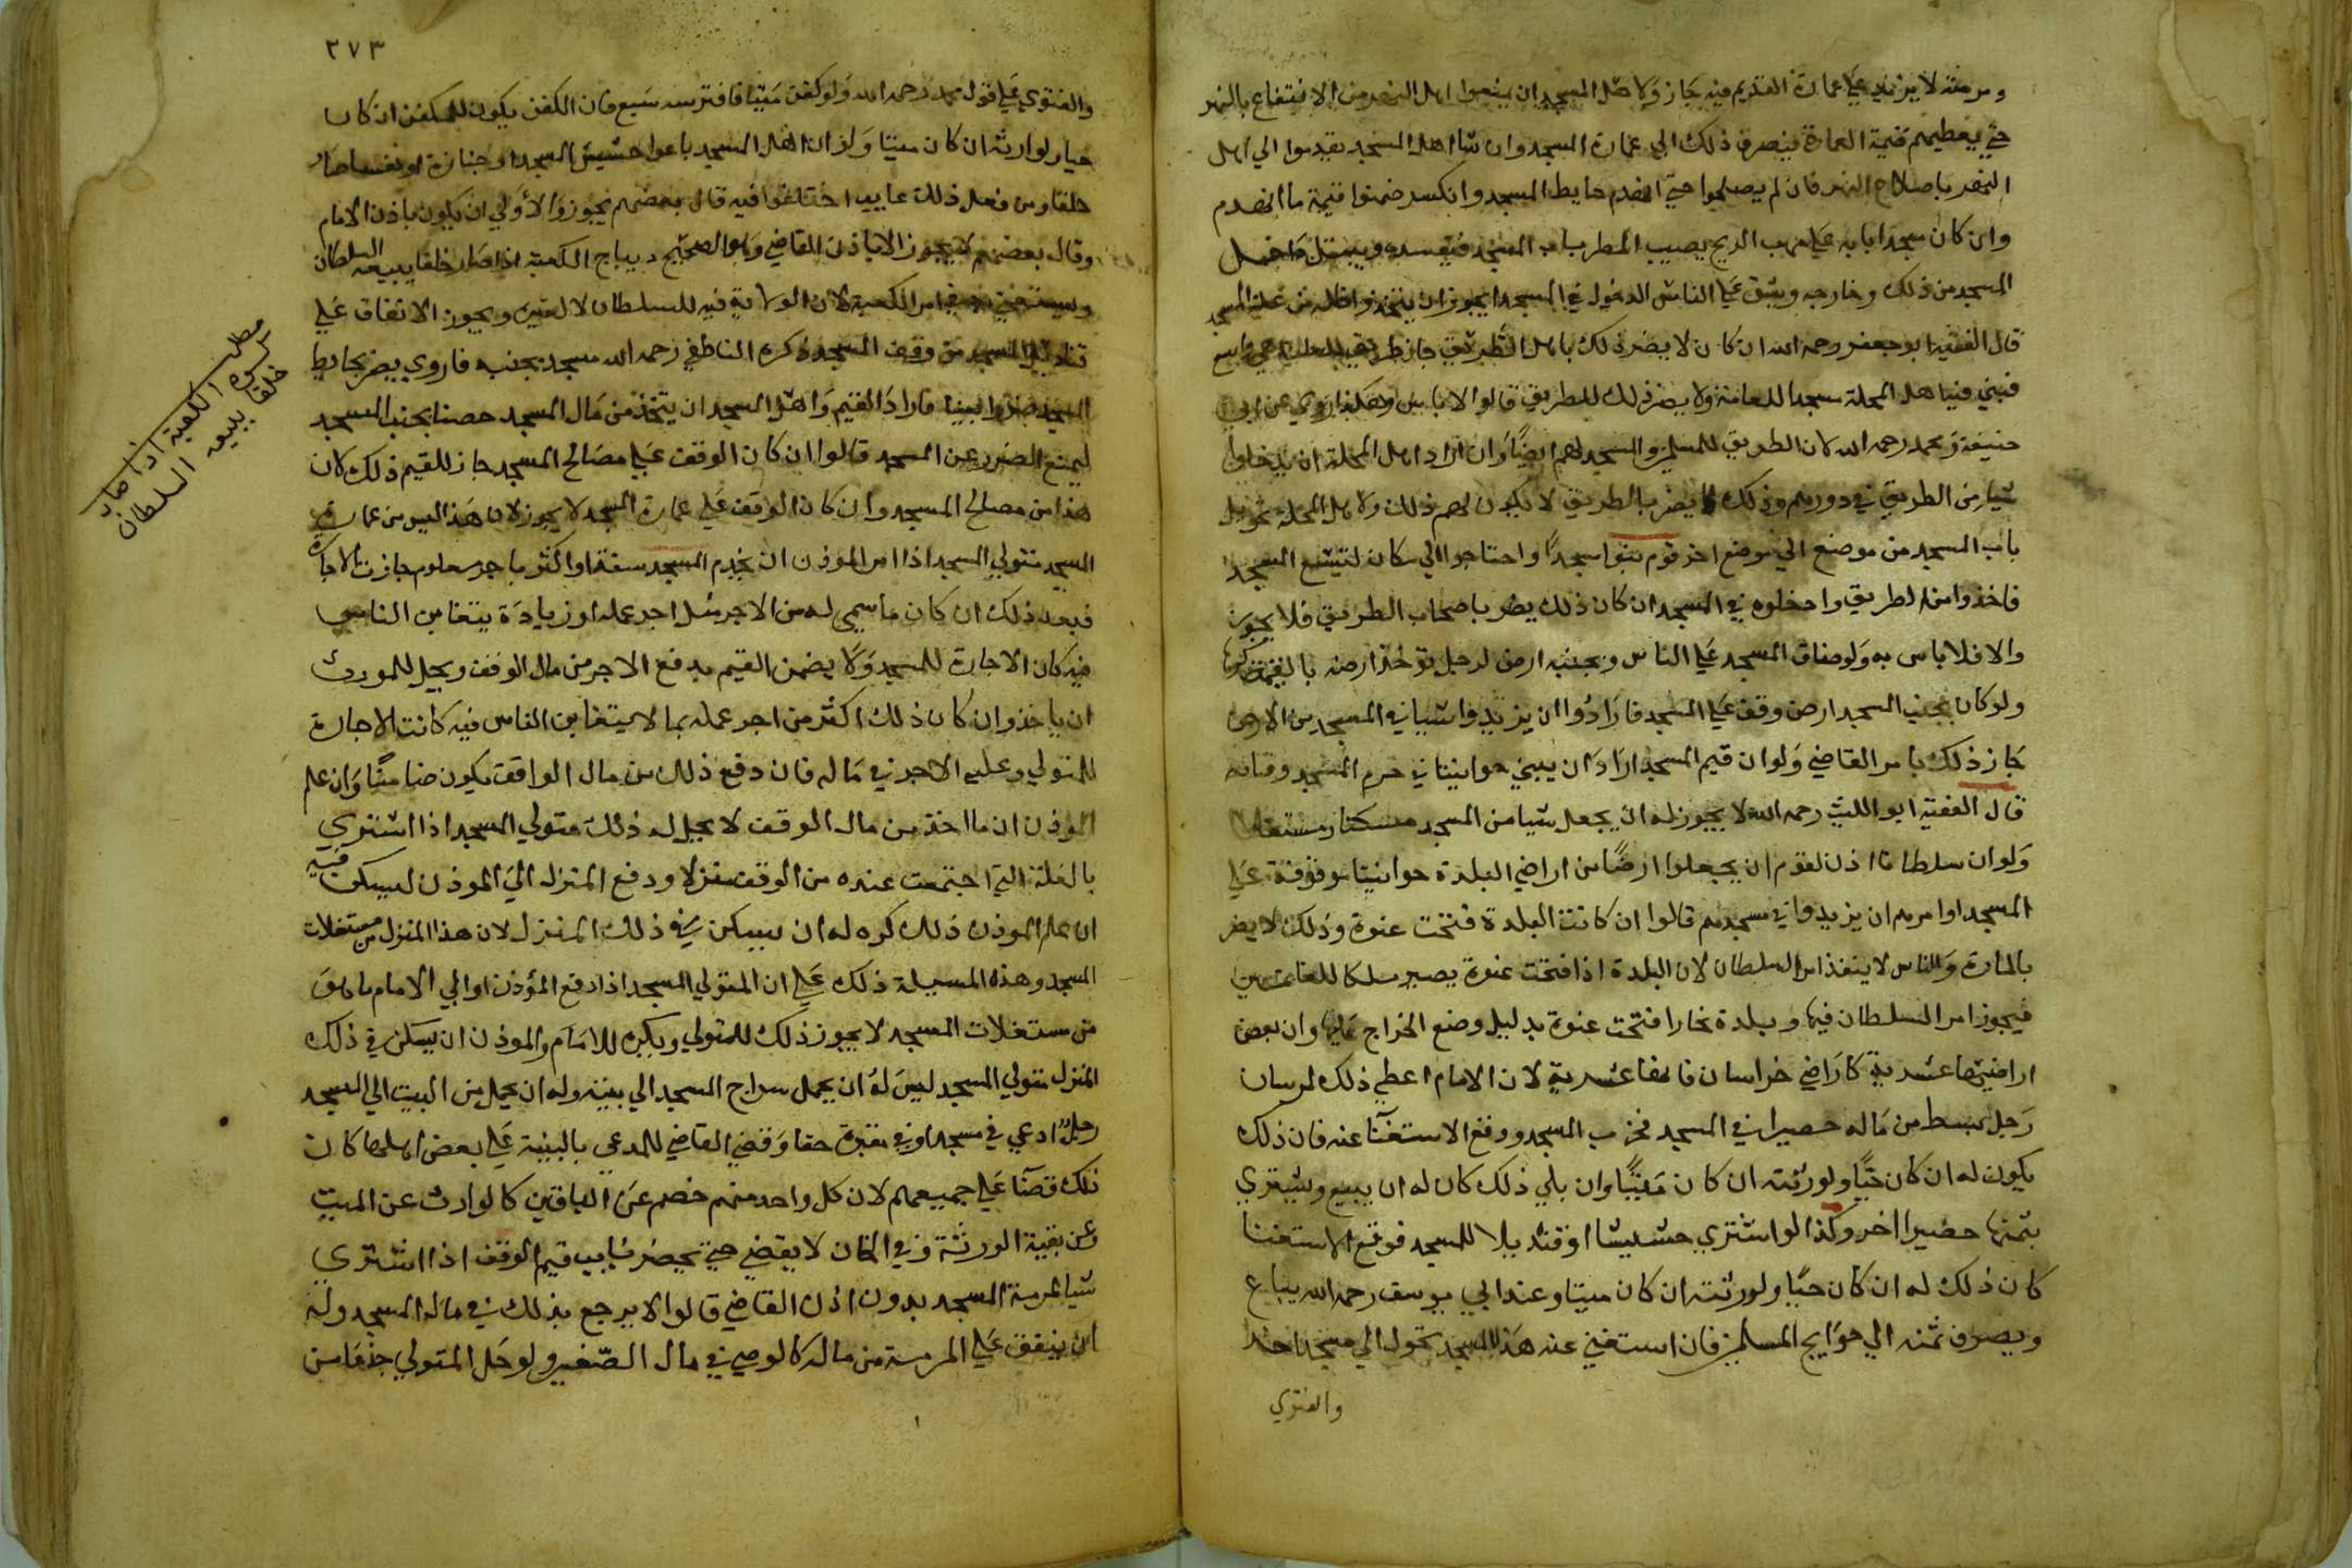 ومرمته لا يزيد على عمارة القديم فيه جاز ولاهل المسجد ان يمنعوا اهل النهر من الانتفاع بالنهر
حتى يعطيهم قيمة العمارة فيصرف ذلك الى عمارة المسجد وان شا اهل المسجد تقدموا الي اهل
النهر باصلاح النهر فان لم يصلحوا حتى انهدم حايط المسجد وانكسر ضمنوا قيمة ما انهدم
وان كان مسجدا بابه على مهب الريح يصيب المطر باب المسجد فيفسده ويبتل داخل
المسجد من ذلك وخارجه ويشق على الناس الدخول في المسجد ايجوز ان يتخذ واظلة من غلة المسجد
قال الفقيه ابو جعفر رحمه الله ان كان لا يضر ذلك باهل الطريق جاز طريق
فبني فيها هل المحلة مسجدا للعامة ولا يضر ذلك للطريق قالوا لا باس وهكذا روي عن ابي
حنيفة ومحمد رحمه الله لان الطريق للمسلمين والمسجد لهم ايضًا وان اراد اهل المحلة ان يدخلوا
شيا من الطريق في دورهم وذلك لا يضر بالطريق لا يكون لهم ذلك ولاهل المحلة تحويل
باب المسجد من موضع الي موضع اخر قوم بنوا مسجدًا واحتاجوا الي مكان ليتسع المسجد
فاخذوا من الطريق وادخلوه في المسجد ان كان ذلك يضر باصحاب الطريق فلا يجوز
والا فلا باس به ولو ضاق المسجد على الناس وبجنبه ارض لرجل توخذ ارضه بالقيمة كرها
ولو كان بجنب المسجد ارض وقف على المسجد فارادوا ان يزيدوا شيا في المسجد من الارض
جاز ذلك بامر القاضي ولو ان قيم المسجد اراد ان يبني حوانيتا في حرم المسجد وفنايه
قال الفقيه ابو الليث رحمه الله لا يجوز له ان يجعل شيا من المسجد مسكنا ومستغلا
ولو ان سلطانا اذن لقوم ان يجعلوا ارضًا من اراضي البلدة حوانيتا موقوفة على
المسجد او امرهم ان يزيدوا في مسجدهم قالوا ان كانت البلدة فتحت عنوة وذلك لا يضر
بالمارة والناس لا ينفذ امر السلطان لان البلدة اذا فتحت عنوة يصير ملكا للغانمين
فيجوز امر السلطان فيها وبلدة بخارا فتحت عنوة بدليل وضع الخراج عليها وان بعض
اراضيها عشرية كاراضي خراسان فانها عشرية لان الامام اعطي ذلك
رجل بسط من ماله حصيرا في المسجد فخرب المسجد ووقع الاستغنا عنه فان ذلك
يكون له ان كان حيًا ولورثته ان كان ميتًا وان بلي ذلك كان له ان يبيع ويشتري
بثمنها حصيرا اخر وكذا لو اشتري حشيشا او قنديلا للمسجد فوقع الاستغنا
كان ذلك له ان كان حيًا ولورثته ان كان ميتا وعند ابي يوسف رحمه الله يباع
ويصرف ثمنه الي حوايج المسلمين فان استغني عنه هذا المسجد تحول الي مسجد اخر
والفتوي
٢٧٣
والفتوي على قول محمد رحمه الله ولو كفن ميتا فافترسه سبع فان الكفن يكون للمكفن ان كان
حيا ولوارثه ان كان ميتا ولو ان اهل المسجد باعوا حشيش المسجد او جنازة او نعشا صار
خلقا ومن فعل ذلك غايب اختلفوا فيه قال بعضهم يجوز والاولي ان يكون باذن الامام
وقال بعضهم لا يجوز الا باذن القاضي وهو الصحيح ديباج الكعبة اذا صار خلقا يبيعه السلطان
ويستعين به في امر الكعبة لان الولاية فيه للسلطان لا لغيره ويجوز الانفاق على
قناديل المسجد من وقف المسجد ذكره الناطفي رحمه الله مسجد بجنبه فاروي يضر بحايط
المسجد ضررا بينا فاراد القيم واهل المسجد ان يتخذ من مال المسجد حصنا بجنب المسجد
ليمنع الضرر عن المسجد قالوا ان كان الوقف على مصالح المسجد جاز للقيم ذلك لان
هذا من مصالح المسجد وان كان الوقف على عمارة المسجد لا يجوز لان هذا ليس من عمارة
المسجد متولي المسجد اذا امر الموذن ان يخدم المسجد سنة او اكثر باجر معلوم جازت الاجارة
فبعد ذلك ان كان ما سمي له من الاجر مثل اجر عمله او زيادة يتغابن الناس
فيه كان الاجارة للمسجد ولا يضمن القيم بدفع الاجر من مال الوقف ويحل للموذن
ان ياخذ وان كان ذلك اكثر من اجر عمله بما لا يتغابن الناس فيه كانت الاجارة
للمتولي وعليه الاجر في ماله فان دفع ذلك من مال الواقف يكون ضامنًا وان علم
الموذن ان ما اخذ من مال الوقف لا يحل له ذلك متولي المسجد اذا اشتري
بالغلة التي اجتمعت عنده من الوقف منزلا ودفع المنزل الي الموذن ليسكن فيه
ان علم الموذن ذلك كره له ان يسكن في ذلك المنزل لان هذا المنزل من مستغلات
المسجد وهذه المسيلة ذلك على ان المتولي المسجد اذا دفع المؤذن او الي الامام ما هو
من مستغلات المسجد لا يجوز ذلك للمتولي ويكره للامام والموذن ان يسكن في ذلك
المنزل متولي المسجد ليس له ان يحمل سراج المسجد الي بيته وله ان يحمل من البيت الي المسجد
رجل ادعي في مسجد او في مقبرة حقا وقضي القاضي للمدعي بالبينة على بعض اهلها كان
ذلك قضا على جميعهم لان كل واحد منهم خصم عن الباقين كالوارث عن الميت
وعن بقية الورثة وفي الخان لا يقضي حتى يحضر نايب قيم الوقف اذا اشتري
شيا لمرمة المسجد بدون اذن القاضي قالوا لا يرجع بذلك في مال المسجد وله
ان ينفق على المرمة من ماله كالوصي في مال الصغير ولو خل المتولي جذعا من
مطلب
كسوة الكعبة اذا صارت
خلقا يبيعه السلطان